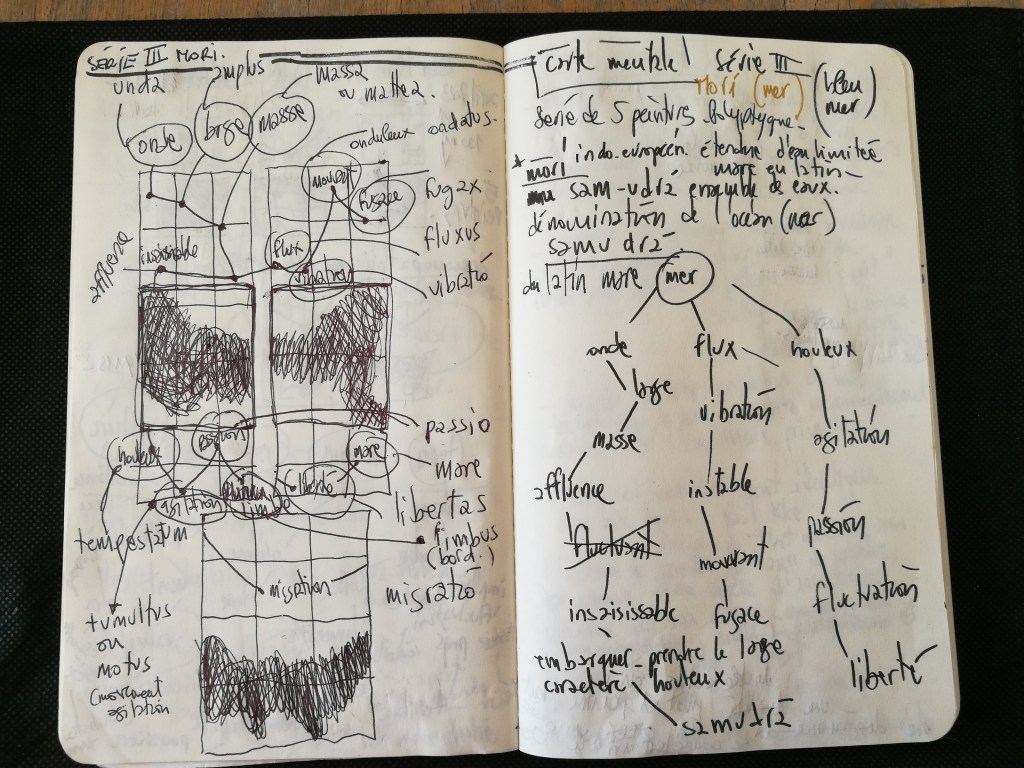 SÉRIE III MORI.
unda
amplus
massa
ou mattea.
onde
large
masse
onduleux ondatus.
mouvant
fugace
fugax
fluxus
flux
vibration
vibratio
insaisissable
houleux
passion
passio
more
more
liberté
libertas
agitation
tempestatum
fimbus
(bord.)
migration
migratio
tumultus
ou
motus
(mouvement
agitation
Carte meuble! Série III
Mori (mer) (bleu
mer)
Série de 5 peintures Polyptyque.
* mori indo-européen étendue d'eau limitée
mare en latin
sam-udrá ensemble de eaux.
dénomination de l'océan (mer)
samudrá
du latin more mer
onde flux houleux
large
vibration
masse
agitation
affluence
instable
passion
fluctuant
mouvant
fluctuation
insaisissable
fugace
liberté
embarquer prendre le large
caractère houleux
samudrá